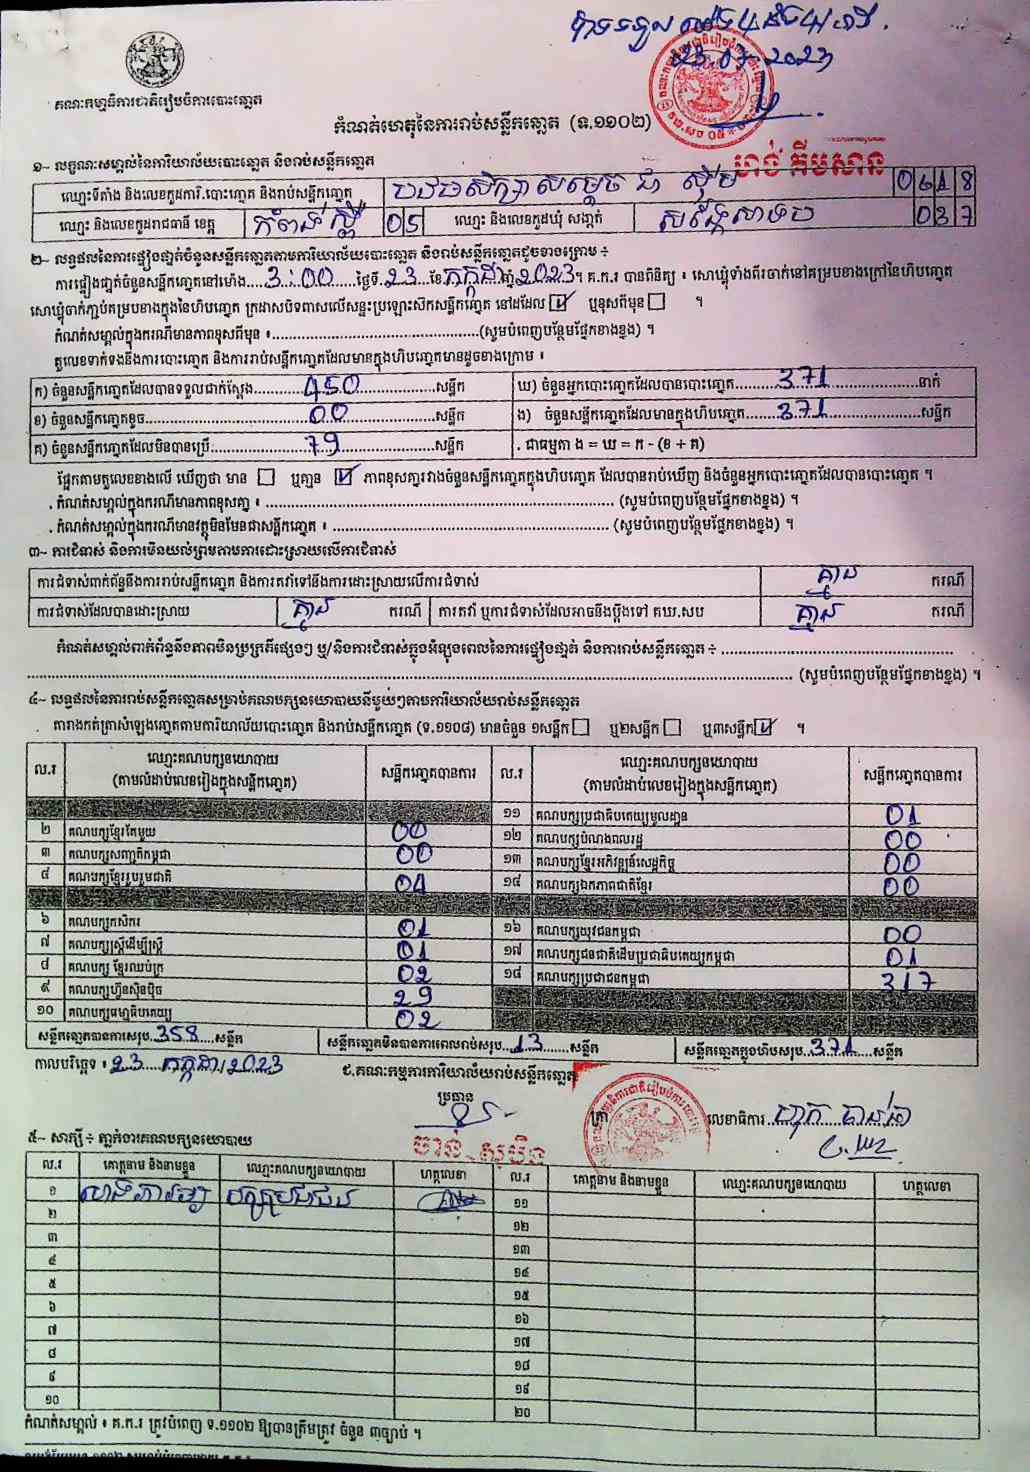 23.07.2023
គណៈកម្មាធិការជាតិរៀបចំការបោះឆ្នោត
កំណត់ហេតុនៃការរាប់សន្លឹកឆ្នោត (ទ.១១០២)
១~ លក្ខណៈសម្គាល់នៃការិយាល័យបោះឆ្នោត និងរាប់សន្លឹកឆ្នោត
ឈ្មោះទីតាំង និងលេខកូដការិ.បោះឆ្នោត និងរាប់សន្លឹកឆ្នោត សម្តេច ជា ស៊ីម 0618
ឈ្មោះ និងលេខកូដរាជធានី ខេត្ត កំពង់ស្ពឺ 05 ឈ្មោះ និងលេខកូដឃុំ សង្កាត់ 037
២~ លទ្ធផលនៃការផ្ទៀងផ្ទាត់ចំនួនសន្លឹកឆ្នោតតាមការិយាល័យបោះឆ្នោត និងរាប់សន្លឹកឆ្នោតដូចខាងក្រោម ÷
ការផ្ទៀងផ្ទាត់ចំនួនសន្លឹកឆ្នោតនៅម៉ោង 3:00 ថ្ងៃទី 23 ខែ កក្កដា ឆ្នាំ 2023។ គ.ក.រ បានពិនិត្យ ៖ សោឃ្លុំទាំងពីរចាក់នៅគម្របខាងក្រៅនៃហិបឆ្នោត
សោឃ្លុំចាក់ភ្ជាប់គម្របខាងក្នុងនៃហិបឆ្នោត ក្រដាសបិទពាសលើសន្ទះប្រឡោះសិកសន្លឹកឆ្នោត នៅដដែល ☑ ឬខុសពីមុន ☐ ។
កំណត់សម្គាល់ក្នុងករណីមានភាពខុសពីមុន ៖ (សូមបំពេញបន្ថែមផ្នែកខាងខ្នង) ។
តួលេខទាក់ទងនឹងការបោះឆ្នោត និងការរាប់សន្លឹកឆ្នោតដែលមានក្នុងហិបឆ្នោតមានដូចខាងក្រោម ៖
ក) ចំនួនសន្លឹកឆ្នោតដែលបានទទួលជាក់ស្តែង 450 សន្លឹក ឃ) ចំនួនអ្នកបោះឆ្នោតដែលបានបោះឆ្នោត 371 នាក់
ខ) ចំនួនសន្លឹកឆ្នោតខូច 00 សន្លឹក ង) ចំនួនសន្លឹកឆ្នោតដែលមានក្នុងហិបឆ្នោត 371 សន្លឹក
គ) ចំនួនសន្លឹកឆ្នោតដែលមិនបានប្រើ 79 សន្លឹក . ជាធម្មតា ង = ឃ = ក - (ខ + គ)
ផ្អែកតាមតួលេខខាងលើ ឃើញថា មាន ☐ ឬគ្មាន ☑ ភាពខុសគ្នារវាងចំនួនសន្លឹកឆ្នោតក្នុងហិបឆ្នោត ដែលបានរាប់ឃើញ និងចំនួនអ្នកបោះឆ្នោតដែលបានបោះឆ្នោត ។
. កំណត់សម្គាល់ក្នុងករណីមានភាពខុសគ្នា ៖ (សូមបំពេញបន្ថែមផ្នែកខាងខ្នង) ។
. កំណត់សម្គាល់ក្នុងករណីមានវត្ថុមិនមែនជាសន្លឹកឆ្នោត ៖ (សូមបំពេញបន្ថែមផ្នែកខាងខ្នង) ។
៣~ ការជំទាស់ និងការមិនយល់ព្រមតាមការដោះស្រាយលើការជំទាស់
ការជំទាស់ពាក់ព័ន្ធនឹងការរាប់សន្លឹកឆ្នោត និងការតវ៉ាទៅនឹងការដោះស្រាយលើការជំទាស់ គ្មាន ករណី
ការជំទាស់ដែលបានដោះស្រាយ គ្មាន ករណី ការតវ៉ា ឬការជំទាស់ដែលអាចនឹងប្តឹងទៅ គឃ.សប គ្មាន ករណី
កំណត់សម្គាល់ពាក់ព័ន្ធនឹងភាពមិនប្រក្រតីផ្សេងៗ ឬ/និងការជំទាស់ក្នុងអំឡុងពេលនៃការផ្ទៀងផ្ទាត់ និងការរាប់សន្លឹកឆ្នោត ÷
(សូមបំពេញបន្ថែមផ្នែកខាងខ្នង) ។
៤~ លទ្ធផលនៃការរាប់សន្លឹកឆ្នោតសម្រាប់គណបក្សនយោបាយនីមួយៗតាមការិយាល័យរាប់សន្លឹកឆ្នោត
តារាងកត់ត្រាសំឡេងឆ្នោតតាមការិយាល័យបោះឆ្នោត និងរាប់សន្លឹកឆ្នោត (ទ.១១០៨) មានចំនួន ១សន្លឹក ☐ ឬ២សន្លឹក ☐ ឬ៣សន្លឹក ☑ ។
ល.រ ឈ្មោះគណបក្សនយោបាយ (តាមលំដាប់លេខរៀងក្នុងសន្លឹកឆ្នោត) សន្លឹកឆ្នោតបានការ ល.រ ឈ្មោះគណបក្សនយោបាយ (តាមលំដាប់លេខរៀងក្នុងសន្លឹកឆ្នោត) សន្លឹកឆ្នោតបានការ
១១ គណបក្សប្រជាធិបតេយ្យមូលដ្ឋាន 01
២ គណបក្សខ្មែរតែមួយ 00 ១២ គណបក្សបំណងពលរដ្ឋ 00
៣ គណបក្សសញ្ជាតិកម្ពុជា 00 ១៣ គណបក្សខ្មែរអភិវឌ្ឍន៍សេដ្ឋកិច្ច 00
៤ គណបក្សខ្មែររួបរួមជាតិ 04 ១៤ គណបក្សឯកភាពជាតិខ្មែរ 00
៦ គណបក្សកសិករ 01 ១៦ គណបក្សយុវជនកម្ពុជា 00
៧ គណបក្សស្ត្រីដើម្បីស្ត្រី 01 ១៧ គណបក្សជនជាតិដើមប្រជាធិបតេយ្យកម្ពុជា 01
៨ គណបក្ស ខ្មែរឈប់ក្រ 02 ១៨ គណបក្សប្រជាជនកម្ពុជា 317
៩ គណបក្សហ៊្វុនស៊ិនប៉ិច 29
១០ គណបក្សធម្មាធិបតេយ្យ 02
សន្លឹកឆ្នោតបានការសរុប 358 សន្លឹក សន្លឹកឆ្នោតមិនបានការពេលរាប់សរុប 13 សន្លឹក សន្លឹកឆ្នោតក្នុងហិបសរុប 371 សន្លឹក
កាលបរិច្ឆេទ ៖ 23 កក្កដា 2023 ជ.គណៈកម្មការការិយាល័យរាប់សន្លឹកឆ្នោត
ប្រធាន ត្រា លេខាធិការ
៥~ សាក្សី ÷ ភ្នាក់ងារគណបក្សនយោបាយ
ល.រ គោត្តនាម និងនាមខ្លួន ឈ្មោះគណបក្សនយោបាយ ហត្ថលេខា ល.រ គោត្តនាម និងនាមខ្លួន ឈ្មោះគណបក្សនយោបាយ ហត្ថលេខា
១ ១១
២ ១២
៣ ១៣
៤ ១៤
៥ ១៥
៦ ១៦
៧ ១៧
៨ ១៨
៩ ១៩
១០ ២០
កំណត់សម្គាល់ ៖ គ.ក.រ ត្រូវបំពេញ ទ.១១០២ ឱ្យបានត្រឹមត្រូវ ចំនួន ៣ច្បាប់ ។